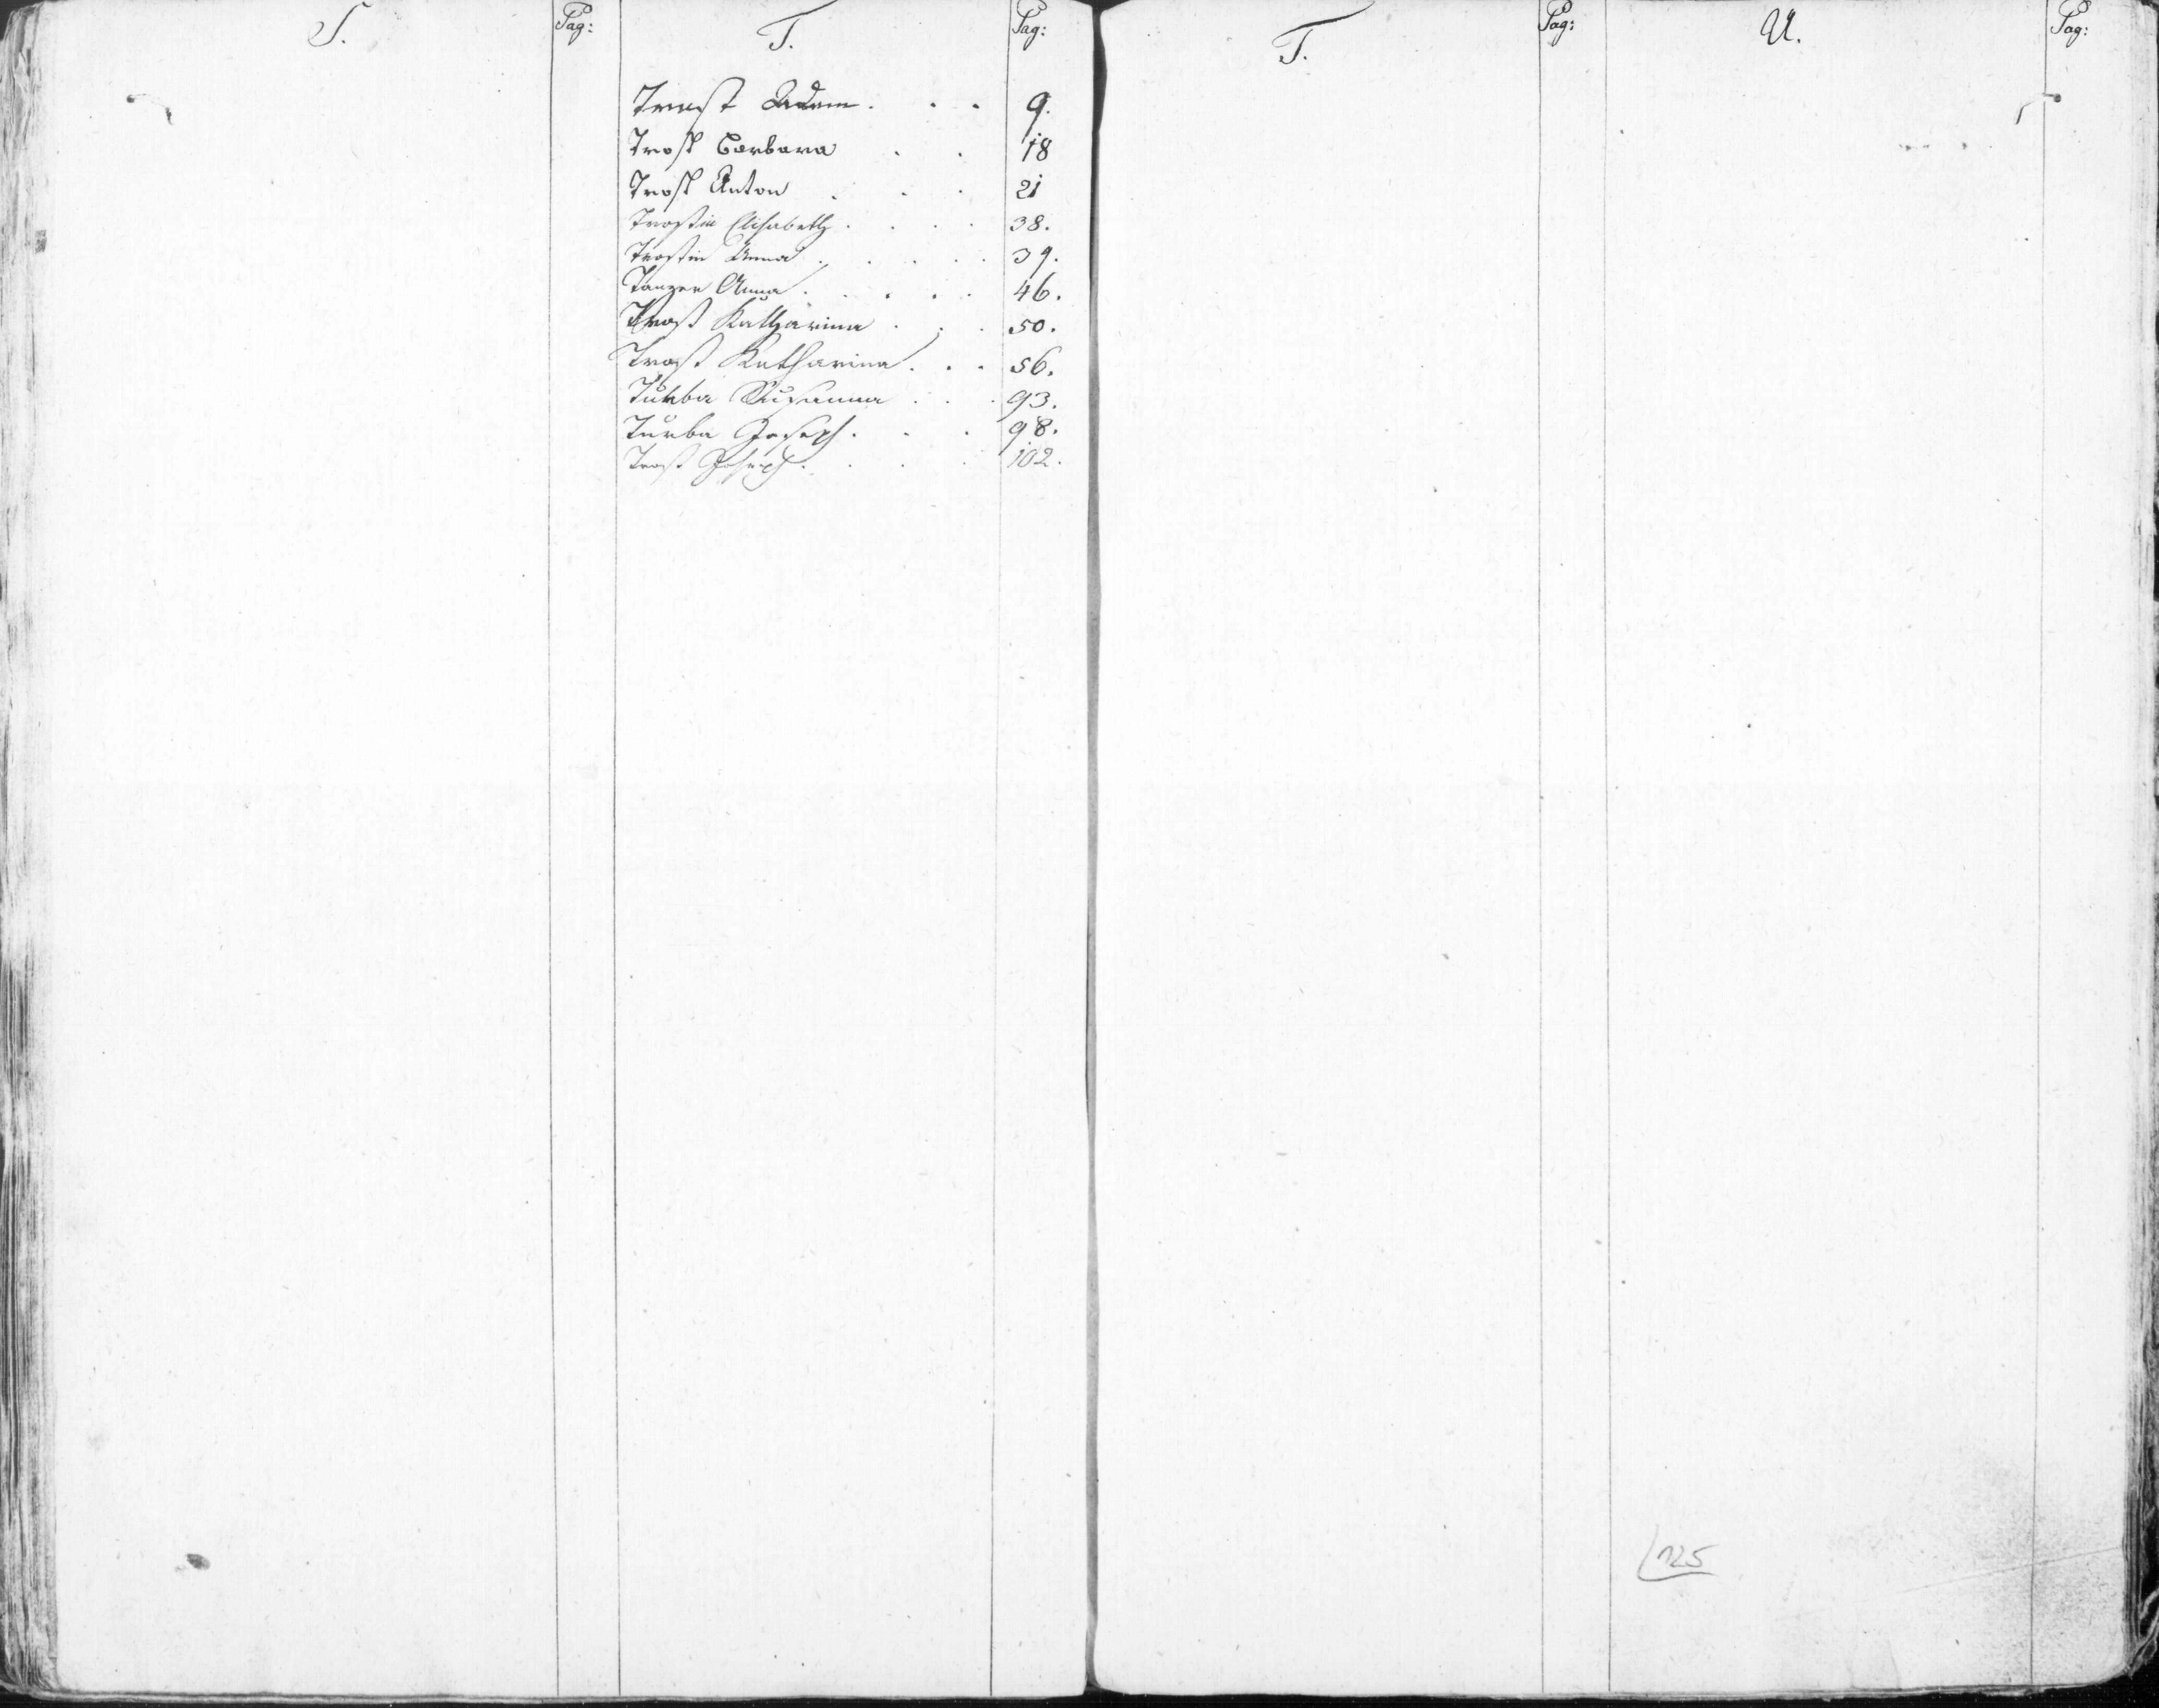 S.
Pag:
T.
Pag:
Trost Adam . . . 9.
Trost Barbara . . 18
Trost Anton . . . 21
Trostin Elisabeth . . . . 38.
Trostin Anna . . . . . 39.
Tanzer Anna . . . . . 46.
Trost Katharina . . . 50.
Trost Katharina . . . 56.
Turba Susanna . . . 93.
Turba Joseph . . . 98.
Trost Joseph . . . . 102.
T.
Pag:
U.
Pag:
125